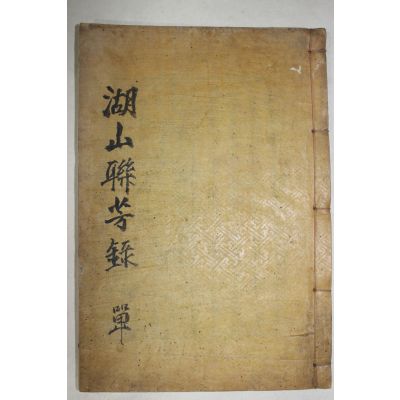 湖山聯芳錄 單